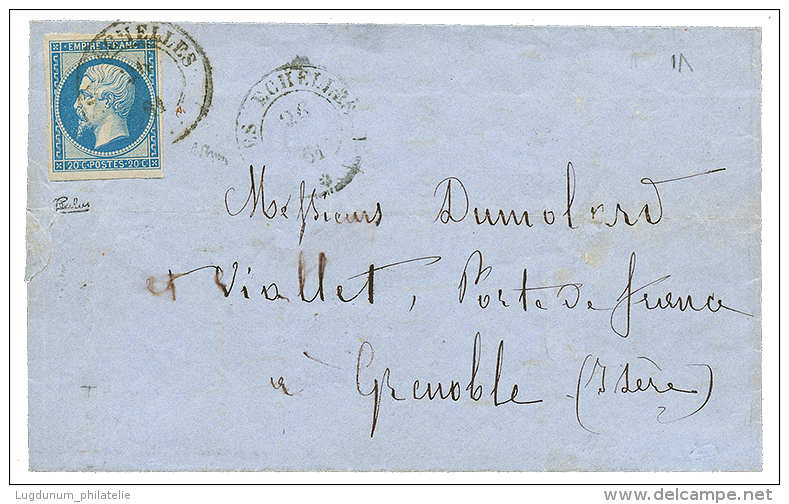 ECHELLES
EMPIRE FRANC
20 C. POSTES 20 C
ES ECHELLES
26
61
Messieurs Dumolard
et Viallet, Porte de france
a Grenoble (Isère)
Lugdunum_philatelie
delcampe.net